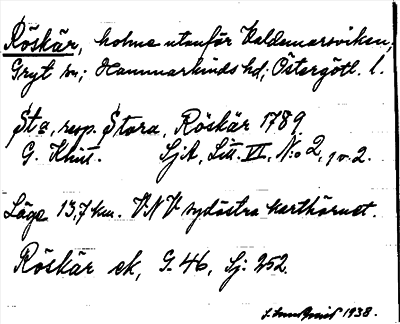 Röskär, holme utanför Valdemarsviken,
Gryt sn; Hammarkinds hd; Östergötl. l.
St a, resp. Stora, Röskär 1789.
G. Klint. SjA, Litt. VI, N:o 2, g v. 2.
Läge 13,7 km. VNV sydöstra karthörnet.
Röskär ek, G. 46, Sj: 252.
1938.